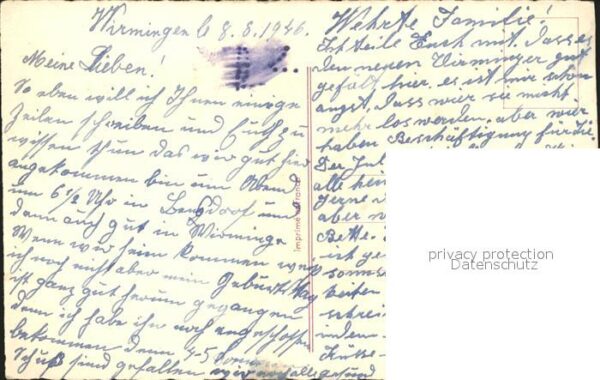 Wirmingen le 8.8.1946.
Meine Lieben!
So eben will ich Ihnen einige
Zeilen schreiben und Euch zu
wissen thun das wir gut hier
angekommen bin um Abend
um 6 1/2 Uhr in und
dann auch gut in Wirminge
Wenn wir heim kommen weiß
ich noch nicht aber mein Geburtstag
ist ganz gut herum gegangen
denn ich habe ihn noch angeschossen
bekommen denn 4-5
Schuß sind gefallen
Wehrte Familie!
Ich teile Euch mit. Dass es
den neuen Wirminger gut
gefält hier. es ist mir schon
angst, dass wier sie nicht
mehr los werden. aber wier
haben Beschäftigung für die.
Der
alle
gerne
aber
Bette.
ist ge
somme
weiter
schrei
Küsse
gesund
Imprimé France
privacy protection
Datenschutz